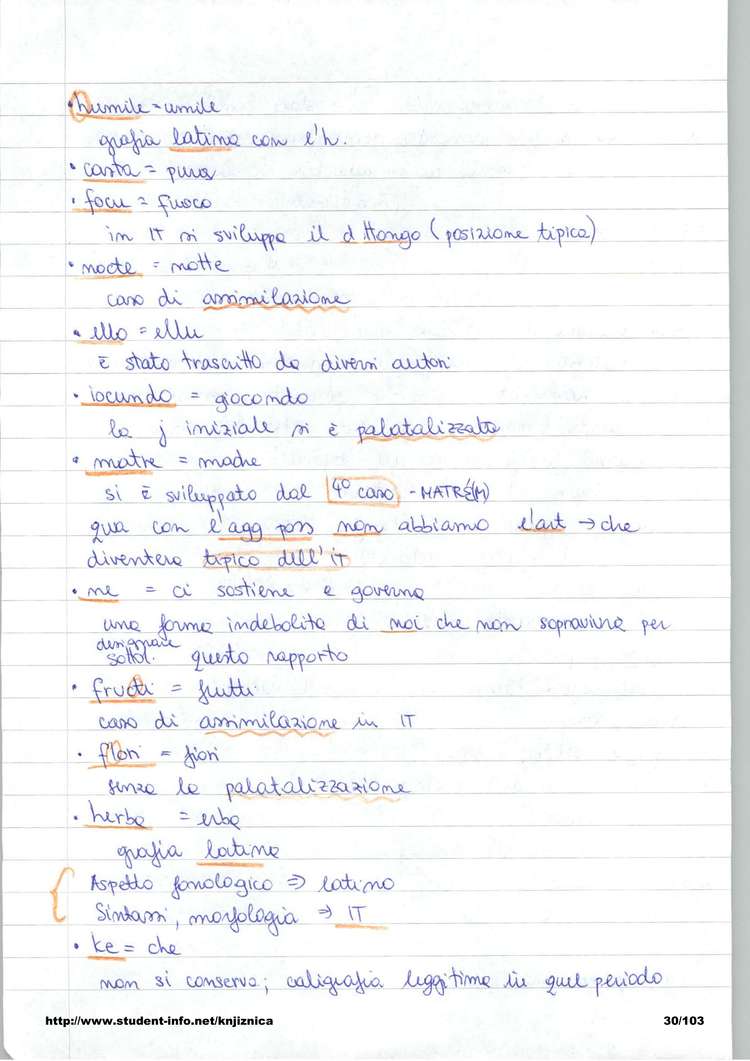 • humile = umile
grafia latina con l'h.
• casta = pura
• focu = fuoco
in IT si sviluppa il dittongo (posizione tipica)
• nocte = notte
caso di assimilazione
• ello = ellu
è stato trascritto da diversi autori
• iocundo = giocondo
la j iniziale si è palatalizzata
• matre = madre
si è sviluppato dal 4° caso - MATRE(M)
qua con l'agg poss non abbiamo l'art → che
diventera tipico dell'IT
• ne = ci sostiene e governa
una forma indebolita di noi che non sopravive per
designare
sottol. questo rapporto
• fructi = frutti
caso di assimilazione in IT
• flori = fiori
senza la palatalizzazione
• herba = erba
grafia latina
Aspetto fonologico ⇒ latino
Sintassi, morfologia ⇒ IT
• ke = che
non si conserva; caligrafia leggitima in quel periodo
http://www.student-info.net/knjiznica
30/103